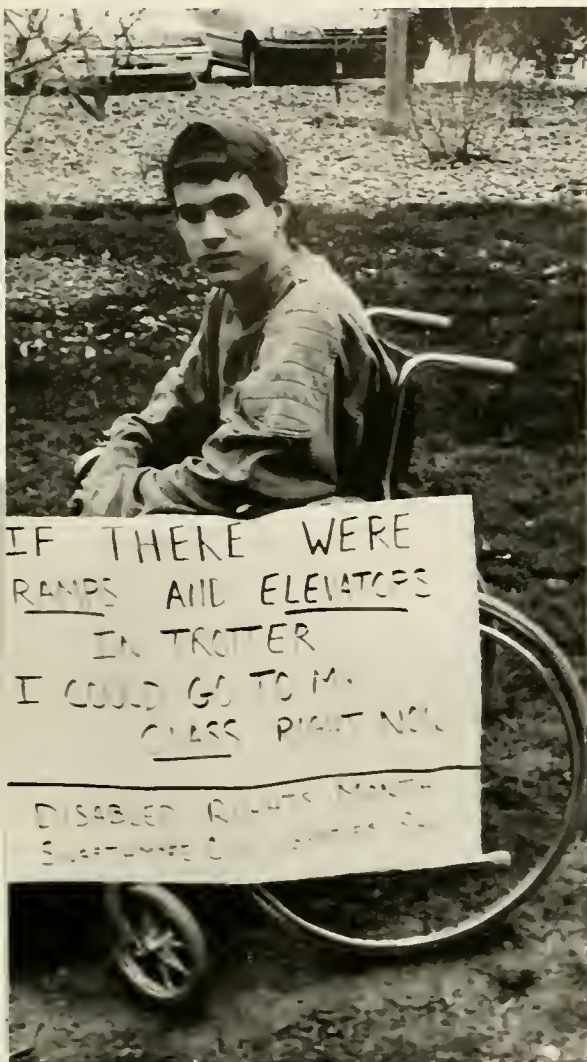 IF THERE WERE
RAMPS AND ELEVATORS
IN TROTTER
I COULD GO TO MY
CLASS RIGHT NOW
DISABLED RIGHTS MONTH